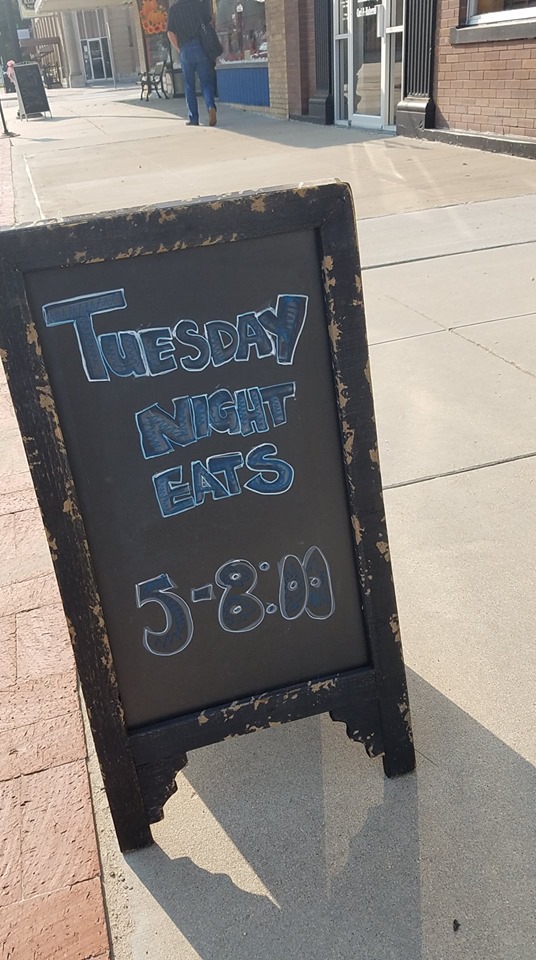 TUESDAY
NIGHT
EATS
5-8:00